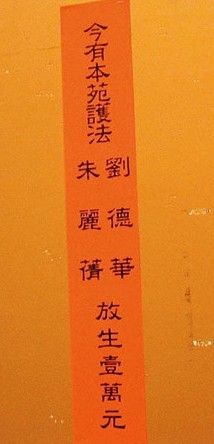 今有本苑護法
劉德華
朱麗蒨
放生壹萬元